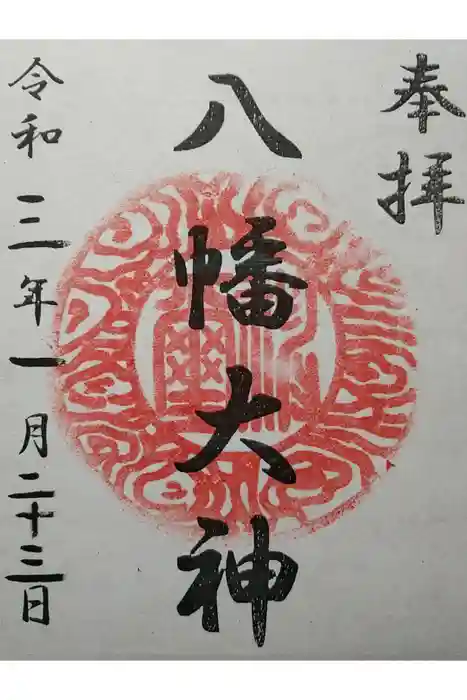 奉拝
八幡大神
令和三年一月二十三日